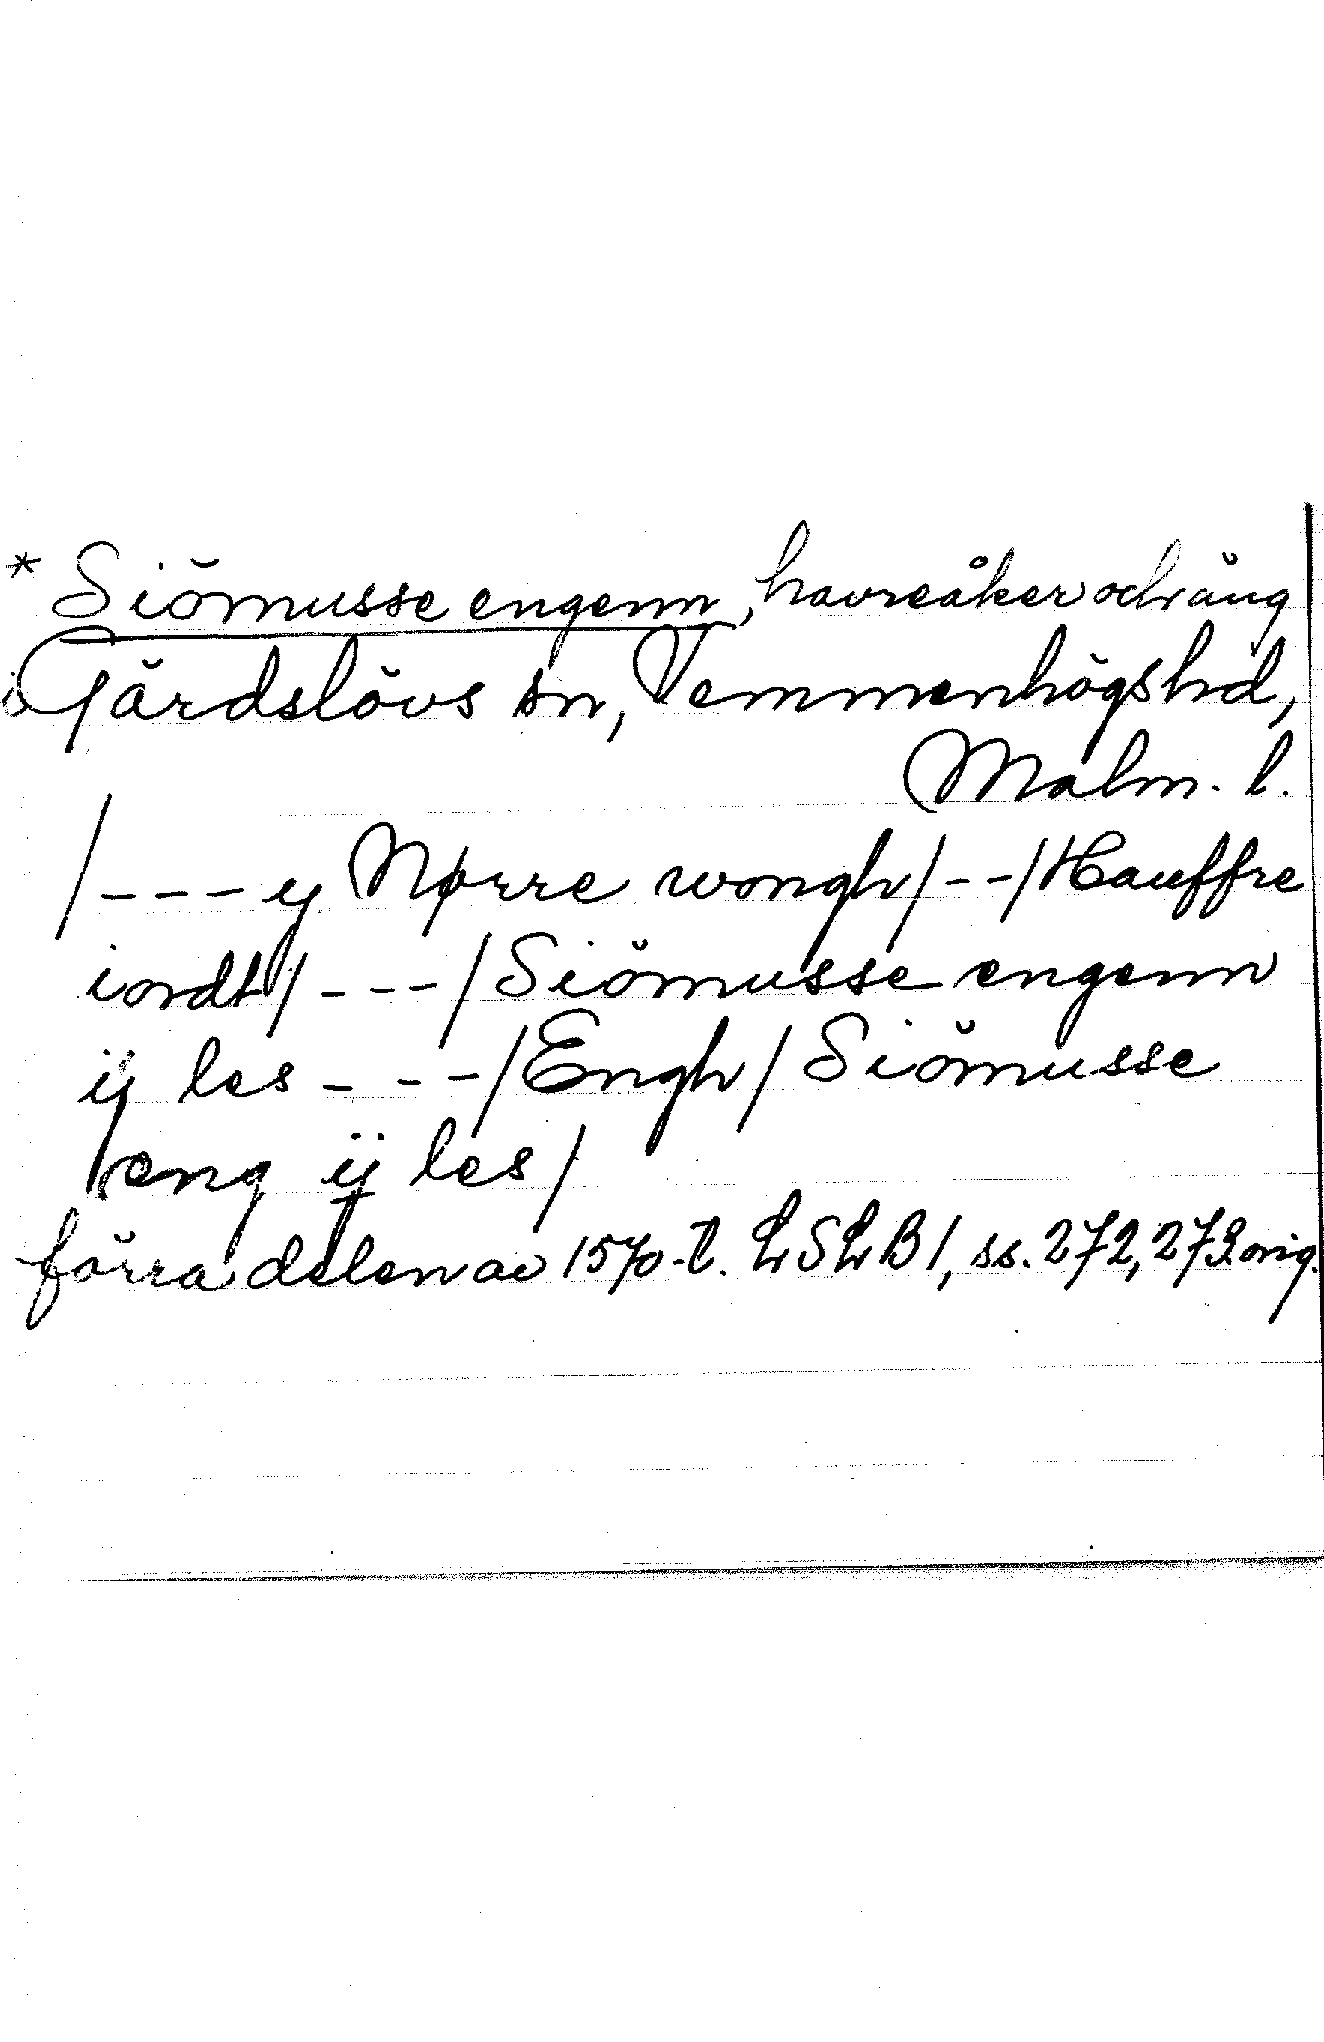 * Siömusse engenn, havreåker och äng
i Gärdslövs sn, Vemmenhögs hd,
Malm. l.
/---y Nørre wongh/--/Hauffre
iordt/---/Siömusse engenn
ij les ---/Engh/Siömusse
eng ij les/
förra delen av 1570-t. LSLB 1, ss. 272, 273 orig.